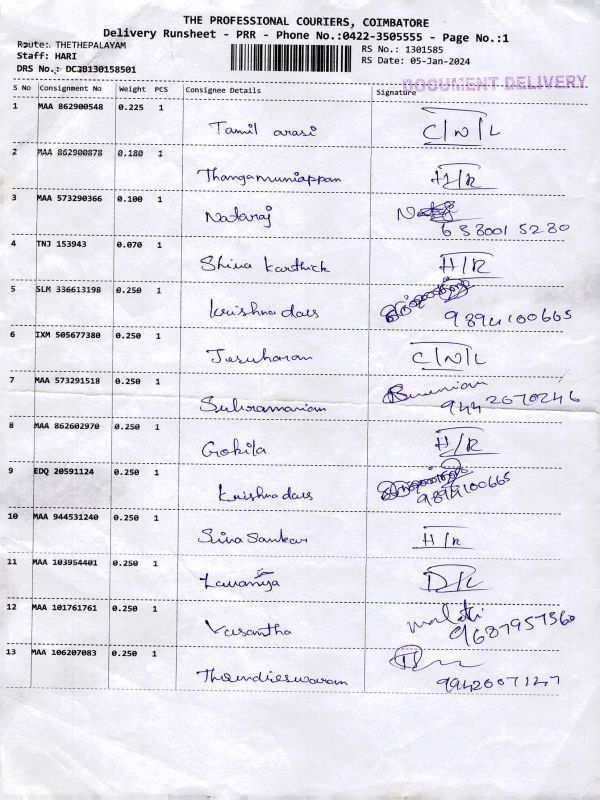 THE PROFESSIONAL COURIERS, COIMBATORE
Delivery Runsheet - PRR - Phone No.:0422-3505555 - Page No.:1
Route: THETHEPALAYAM
RS No.: 1301585
Staff: HARI
RS Date: 05-Jan-2024
DRS No.: DCJB130158501
DOCUMENT DELIVERY
S No Consignment No Weight PCS Consignee Details Signature
1 MAA 862900548 0.225 1
Tamil arasi C/N/L
2 MAA 862900878 0.180 1
Thangamuniappan H/R
3 MAA 573290366 0.100 1
Nataraj
4 TNJ 153943 0.070 1
Shiva Karthick H/R
5 SLM 336613198 0.250 1
Krishna dass 9894100665
6 IXM 505677380 0.250 1
C/N/L
7 MAA 573291518 0.250 1
Subramaniam 9442670246
8 MAA 862602970 0.250 1
Gokila H/R
9 EDQ 20591124 0.250 1
Krishna dass 9894100665
10 MAA 944531240 0.250 1
Siva Sankar H/R
11 MAA 103954401 0.250 1
Lavanya D/L
12 MAA 101761761 0.250 1
Vasantha 9687957560
13 MAA 106207083 0.250 1
9942007147